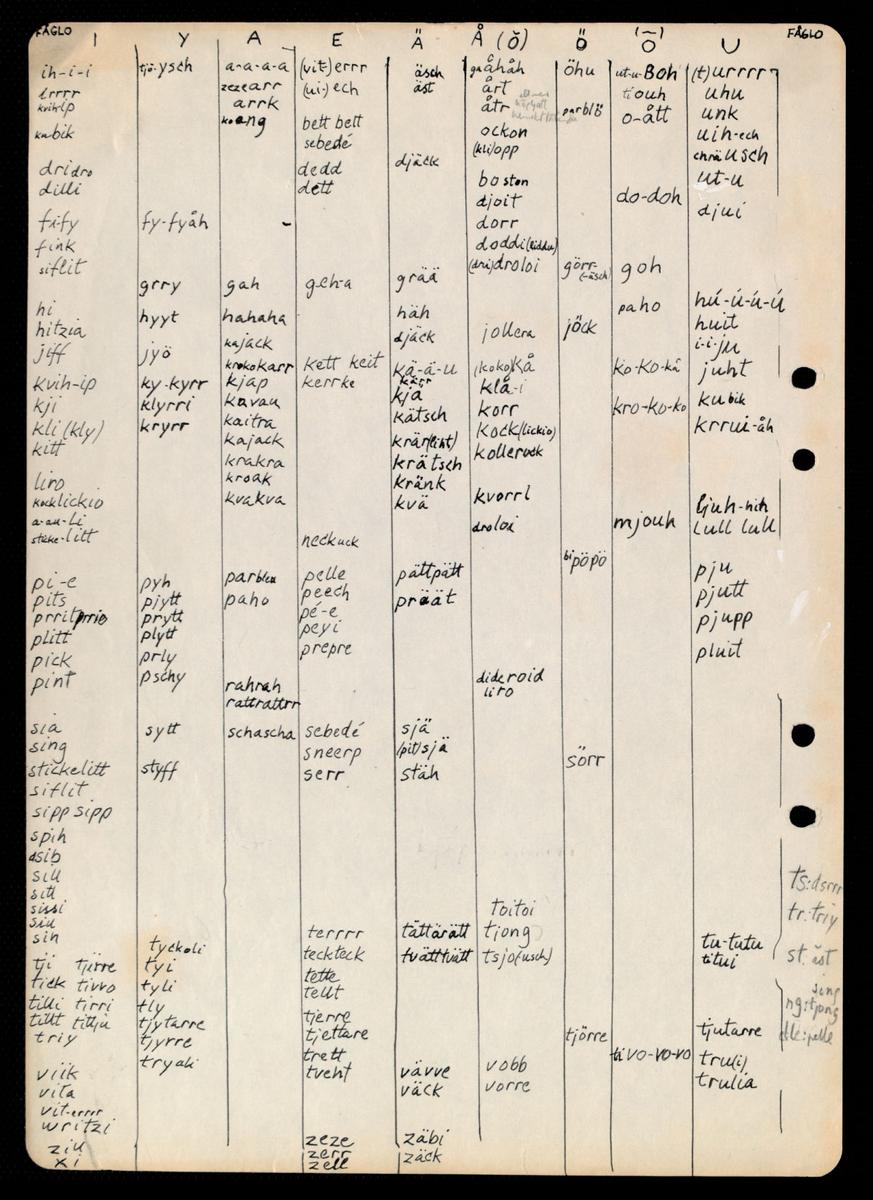 FÅGLO I Y A E Ä Å (Ŏ) Ö O U FÅGLO
ih-i-i tjö-ysch a-a-a-a (vit)errr äsch åhåh öhu ut-u-Boh (t)urrrr
errrr zezearr (ui-)ech äst årt tiouh uhu
kvihip arrk åtr parblö o-ått unk
kubik koang bett bett ockon uih-ech
sebedé (kli)opp chräusch
dridro dedd djäck boston ut-u
dilli dett djoit do-doh djui
fify fy-fyåh - dorr
fink doddi(kiddu)
siflit (dri)droloi görr-(-äsch) goh
grry gah geh-a grää
hi hyyt hahaha häh paho hú-ú-ú-ú
hitzia kajack djäck jollera jöck huit
jiff jyö krokokarr kett keit kä-ä-u (koko)kå ko-ko-kå i-i-ju
kvih-ip ky-kyrr kjap kerrke kärr klå-i juht
kji klyrri kavau kjä korr kro-ko-ko kubik
kli (kly) kryrr kaitra kätsch kock(lickio) krrui-åh
kitt kajack krär(liht) kollerock
krakra krätsch
liro kroak kränk
kocklickio kvakva kvä kvorrl ljuh-hih
a-au-li droloi mjouh lull lull
sticke-litt neckuck
bipöpö
pi-e pyh parbleu pelle pättpätt pju
pits pjytt paho peech präät pjutt
prritprrio prytt pé-e pjupp
plitt plytt peyi
pick prly prepre pluit
pint pschy rahrah dideroid
rattrattrr liro
sia sytt schascha sebedé sjä
sing sneerp (pit)sjä sörr
stickelitt styff serr stäh
siflit
sipp sipp
spih
dsib
sill ts:dsrrr
sitt
sissi toitoi tr:triy
siu
sih tyckoli terrrr tättärätt tjong tu-tutu
tji tjirre tyi teckteck tvättvätt tsjo(usch) titui st.äst
tick tivvo tyli tette sing
tilli tirri tly tellt ng:tjong
tillt tillju tjytarre tjerre
triy tjyrre tjettare tjörre tjutarre elle:pelle
tryali trett tivo-vo-vo
viik tveht vävve vobb truli)
vita väck vorre trulia
vit-errrr
writzi
ziu zeze zäbi
xi zerr zäck
zell